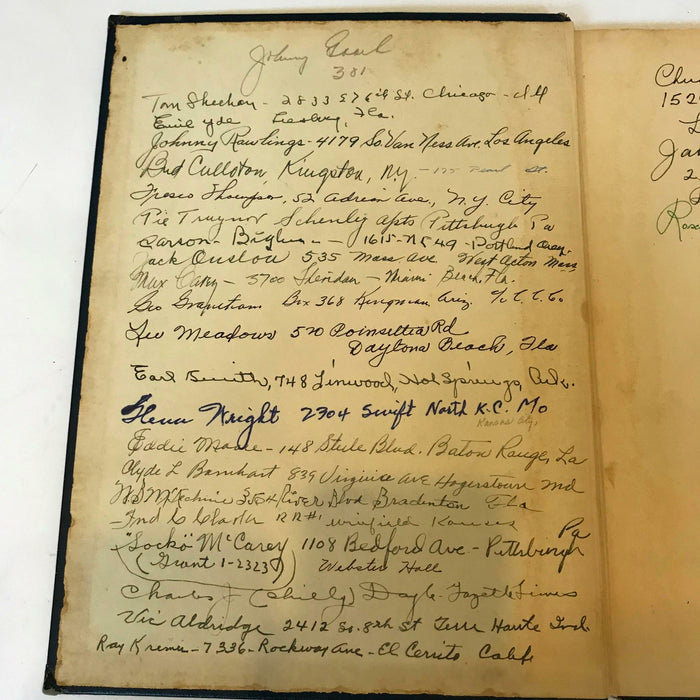 Johnny
381
Tom Sheehan - 2833 E 76th St. Chicago - Ill
Emil Yde Leesburg, Fla.
Johnny Rawlings - 4179 So. Van Ness Ave. Los Angeles
Bud Culloton, Kingston, N.Y. - St.
Fresco Thompson, 52 Adrian Ave., N.Y. City
Pie Traynor Schenley Apts Pittsburgh Pa
Carson - Bigbee - 1615 - N 549 - Portland Oreg.
Jack Onslow 535 Mass. Ave West Acton Mass
Max Carey - 5700 Sheridan - Miami Beach, Fla.
Geo Grantham Box 368 Kingman Ariz. % C. C. Co
Lee Meadows 520 Poinsettia Rd
Daytona Beach, Fla
Earl Smith, 748 Linwood, Hot Springs, Ark.
Glenn Wright 2704 Swift North K.C. Mo
Kansas City,
Eddie Moore - 148 Steele Blvd. Baton Rouge, La
Clyde L Barnhart 839 Virginia Ave Hagerstown Md
W B McKechnie River Blvd Bradenton Fla
Fred C Clarke RR#1 Winfield Kansas
"Socko" McCarey 1108 Bedford Ave - Pittsburgh Pa
(Grant 1-2323) Webster Hall
Charles J (Chilly) Doyle - Gazette Times
Vic Aldridge 2412 So. 8th St Terre Haute Ind.
Ray Kremer - 7336 - Rockway Ave - El Cerrito Calif
Chu
152
L
Ja
2